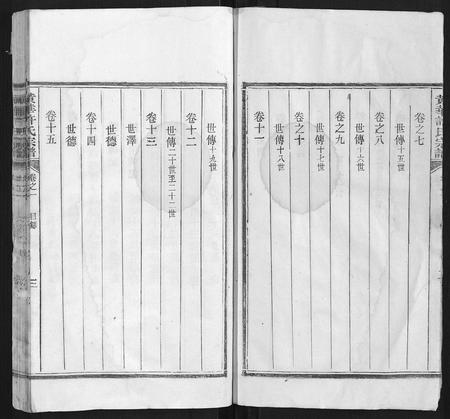 黄華許氏宗譜
卷之七
世傳十五世
卷之八
世傳十六世
卷之九
世傳十七世
卷之十
世傳十八世
卷十一
世傳十九世
卷十二
世傳二十世至二十二世
卷十三
世澤
世德
卷十四
世德
卷十五
許氏宗譜
卷之一
目錄